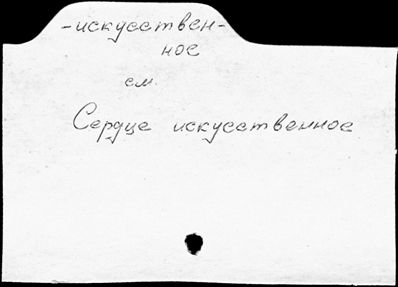 -искусствен-
ное
см.
Сердце искусственное